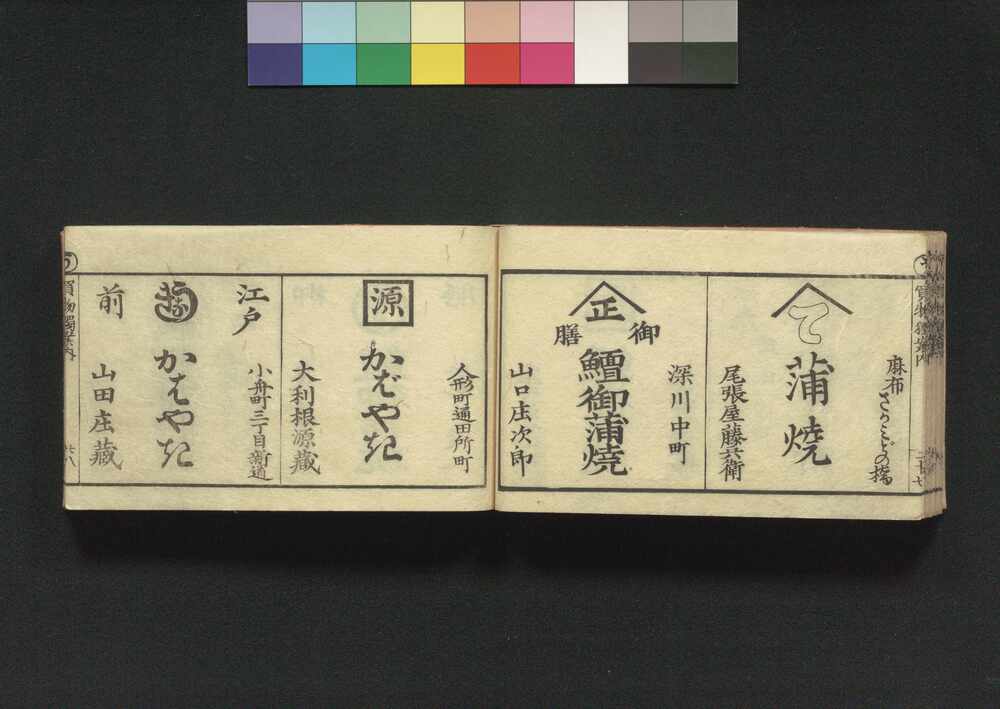 麻布
て
蒲焼
尾張屋藤兵衛
深川中町
正
御膳
鱣御蒲焼
山口庄次郎
人形町通田所町
源
かばやき
大利根源蔵
小舟町三丁目新道
江戸
かばやき
前
山田庄蔵
買物獨案内
廿八